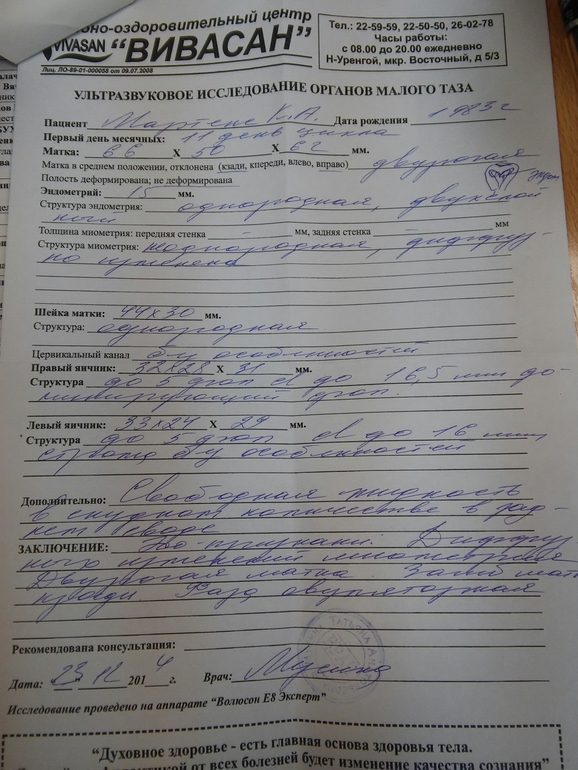 но-оздоровительный центр
VIVASAN "ВИВАСАН"
Лиц. ЛО-89-01-000058 от 09.07.2008
Тел.: 22-59-59, 22-50-50, 26-02-78
Часы работы:
с 08.00 до 20.00 ежедневно
Н-Уренгой, мкр. Восточный, д 5/3
УЛЬТРАЗВУКОВОЕ ИССЛЕДОВАНИЕ ОРГАНОВ МАЛОГО ТАЗА
Пациент Мартенс К.А. Дата рождения 1983 г
Первый день месячных: 11 день цикла
Матка: 66 Х 50 Х 62 мм.
Матка в среднем положении, отклонена (кзади, кпереди, влево, вправо) двурогая
Полость деформирована; не деформирована
Эндометрий: 15 мм.
Структура эндометрия: однородная, двухслой
ный
Толщина миометрия: передняя стенка - мм, задняя стенка - мм
Структура миометрия: неоднородная, диффуз-
но изменена
Шейка матки: 44х30 мм.
Структура: однородная
Цервикальный канал б/у особенностей
Правый яичник: 32х28 Х 31 мм.
Структура до 5 фол d до 16,5 мм до-
минирующий фол.
Левый яичник: 33х24 Х 29 мм.
Структура до 5 фол d до 16 мм,
строма б/у особенностей
Дополнительно: Свободная жидкость
в скудном количестве в зад-
нем своде
ЗАКЛЮЧЕНИЕ: Эхо-признаки: Диффуз-
ного изменений миометрия
Двурогая матка Загиб мат
кзади Фаза овуляторная
Рекомендована консультация:
Дата: "23" 12 2014 г. Врач:
Исследование проведено на аппарате "Волюсон Е8 Эксперт"
"Духовное здоровье - есть главная основа здоровья тела.
от всех болезней будет изменение качества сознания"